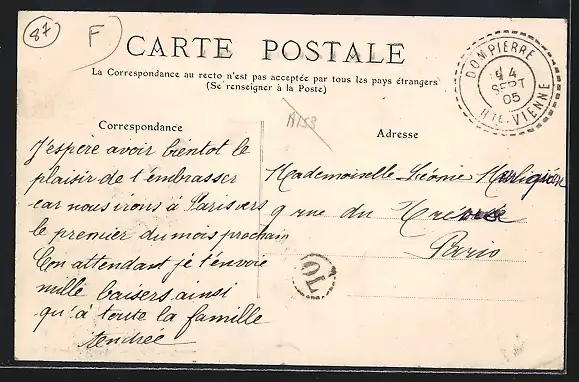 87
F
CARTE POSTALE
La Correspondance au recto n'est pas acceptée par tous les pays étrangers
(Se renseigner à la Poste)
DOMPIERRE
4
SEPT
05
HTE-VIENNE
A153
Correspondance
J'espère avoir bientôt le
plaisir de t'embrasser
car nous irons à Paris vers
le premier du mois prochain
En attendant je t'envoie
mille baisers ainsi
qu'à toute la famille
Andrée
Adresse
Mademoiselle Léonie
9 rue du
Paris
OL